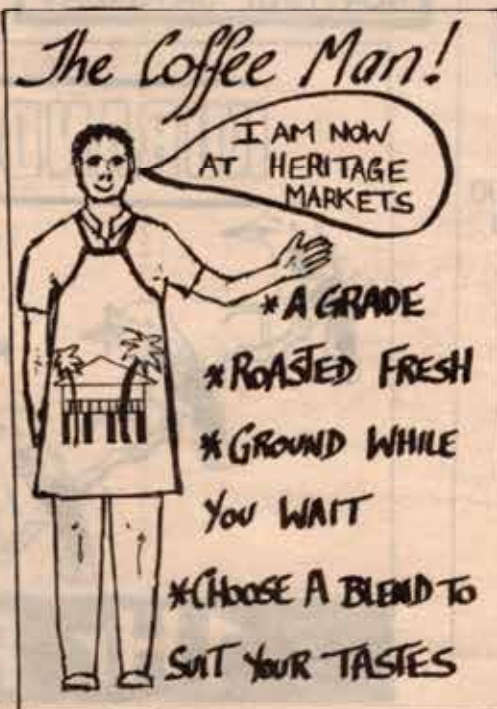 The Coffee Man!
I AM NOW
AT HERITAGE
MARKETS
*A GRADE
*ROASTED FRESH
*GROUND WHILE
YOU WAIT
*CHOOSE A BLEND TO
SUIT YOUR TASTES